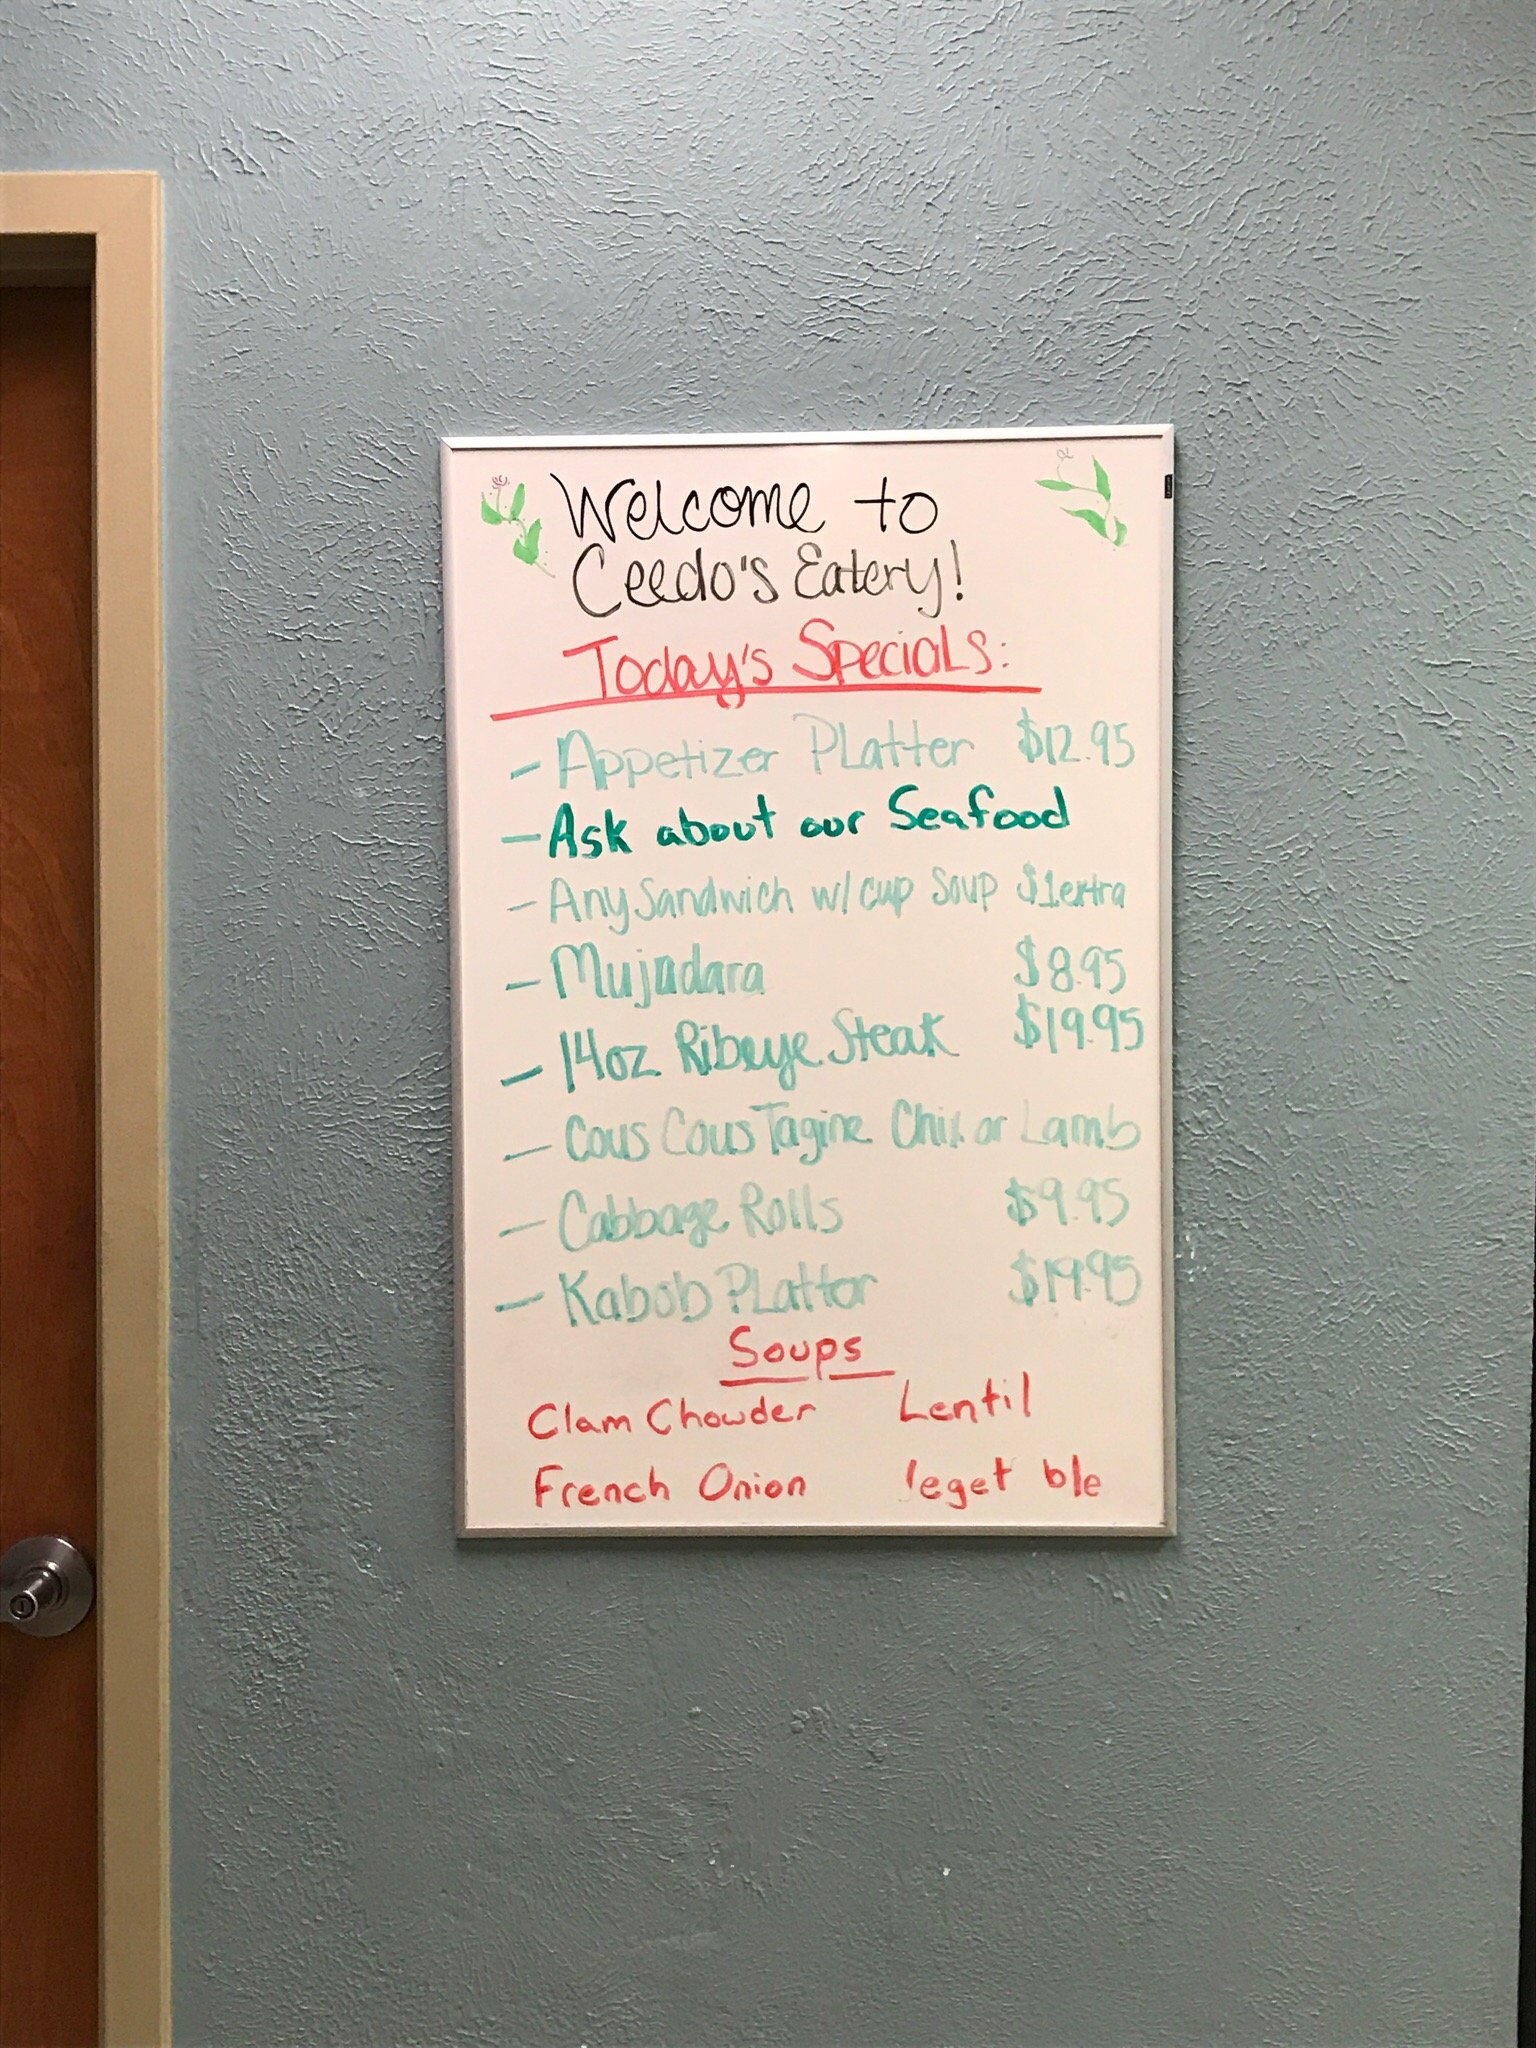 Welcome to
Ceedo's Eatery!
Today's Specials:
- Appetizer Platter $12.95
- Ask about our Seafood
- Any Sandwich w/ cup soup $1 extra
- Mujadara $8.95
- 14oz Ribeye Steak $19.95
- Cous Cous Tagine Chix or Lamb
- Cabbage Rolls $9.95
- Kabob Platter $19.95
Soups
Clam Chowder Lentil
French Onion eget ble